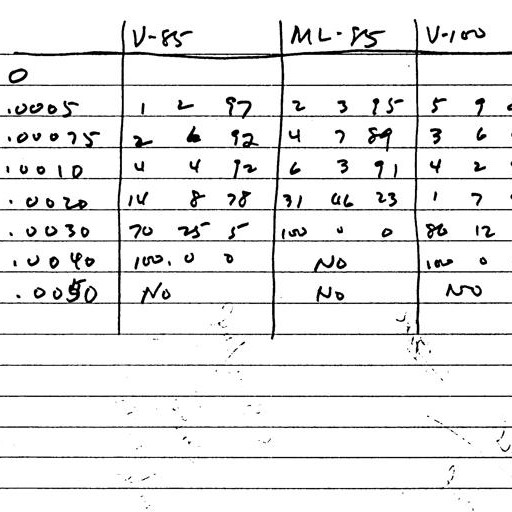 V-85 ML-85 V-100
0
.0005 1 2 97 2 3 95 5 9
.00075 2 6 92 4 7 89 3 6
.0010 4 4 92 6 3 91 4 2
.0020 14 8 78 31 46 23 1 7
.0030 70 25 5 100 0 0 86 12
.0040 100 0 0 NO 100 0
.0050 NO NO NO